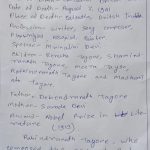 Date of Death: August 7, 1941
Place of Death: Calcutta, British India
writer, song composer,
playwright, essayist, painter
Spouse: Mrinalini Devi
Children: Renuka Tagore, Shamindranath
Tagore, Meera Tagore,
Rathindranath Tagore and Madhurilata
Tagore.
Father: Debendranath Tagore
Mother: Sarada Devi
Award: Nobel Prize in Literature
(1913)
Rabindranath Tagore, who
composed